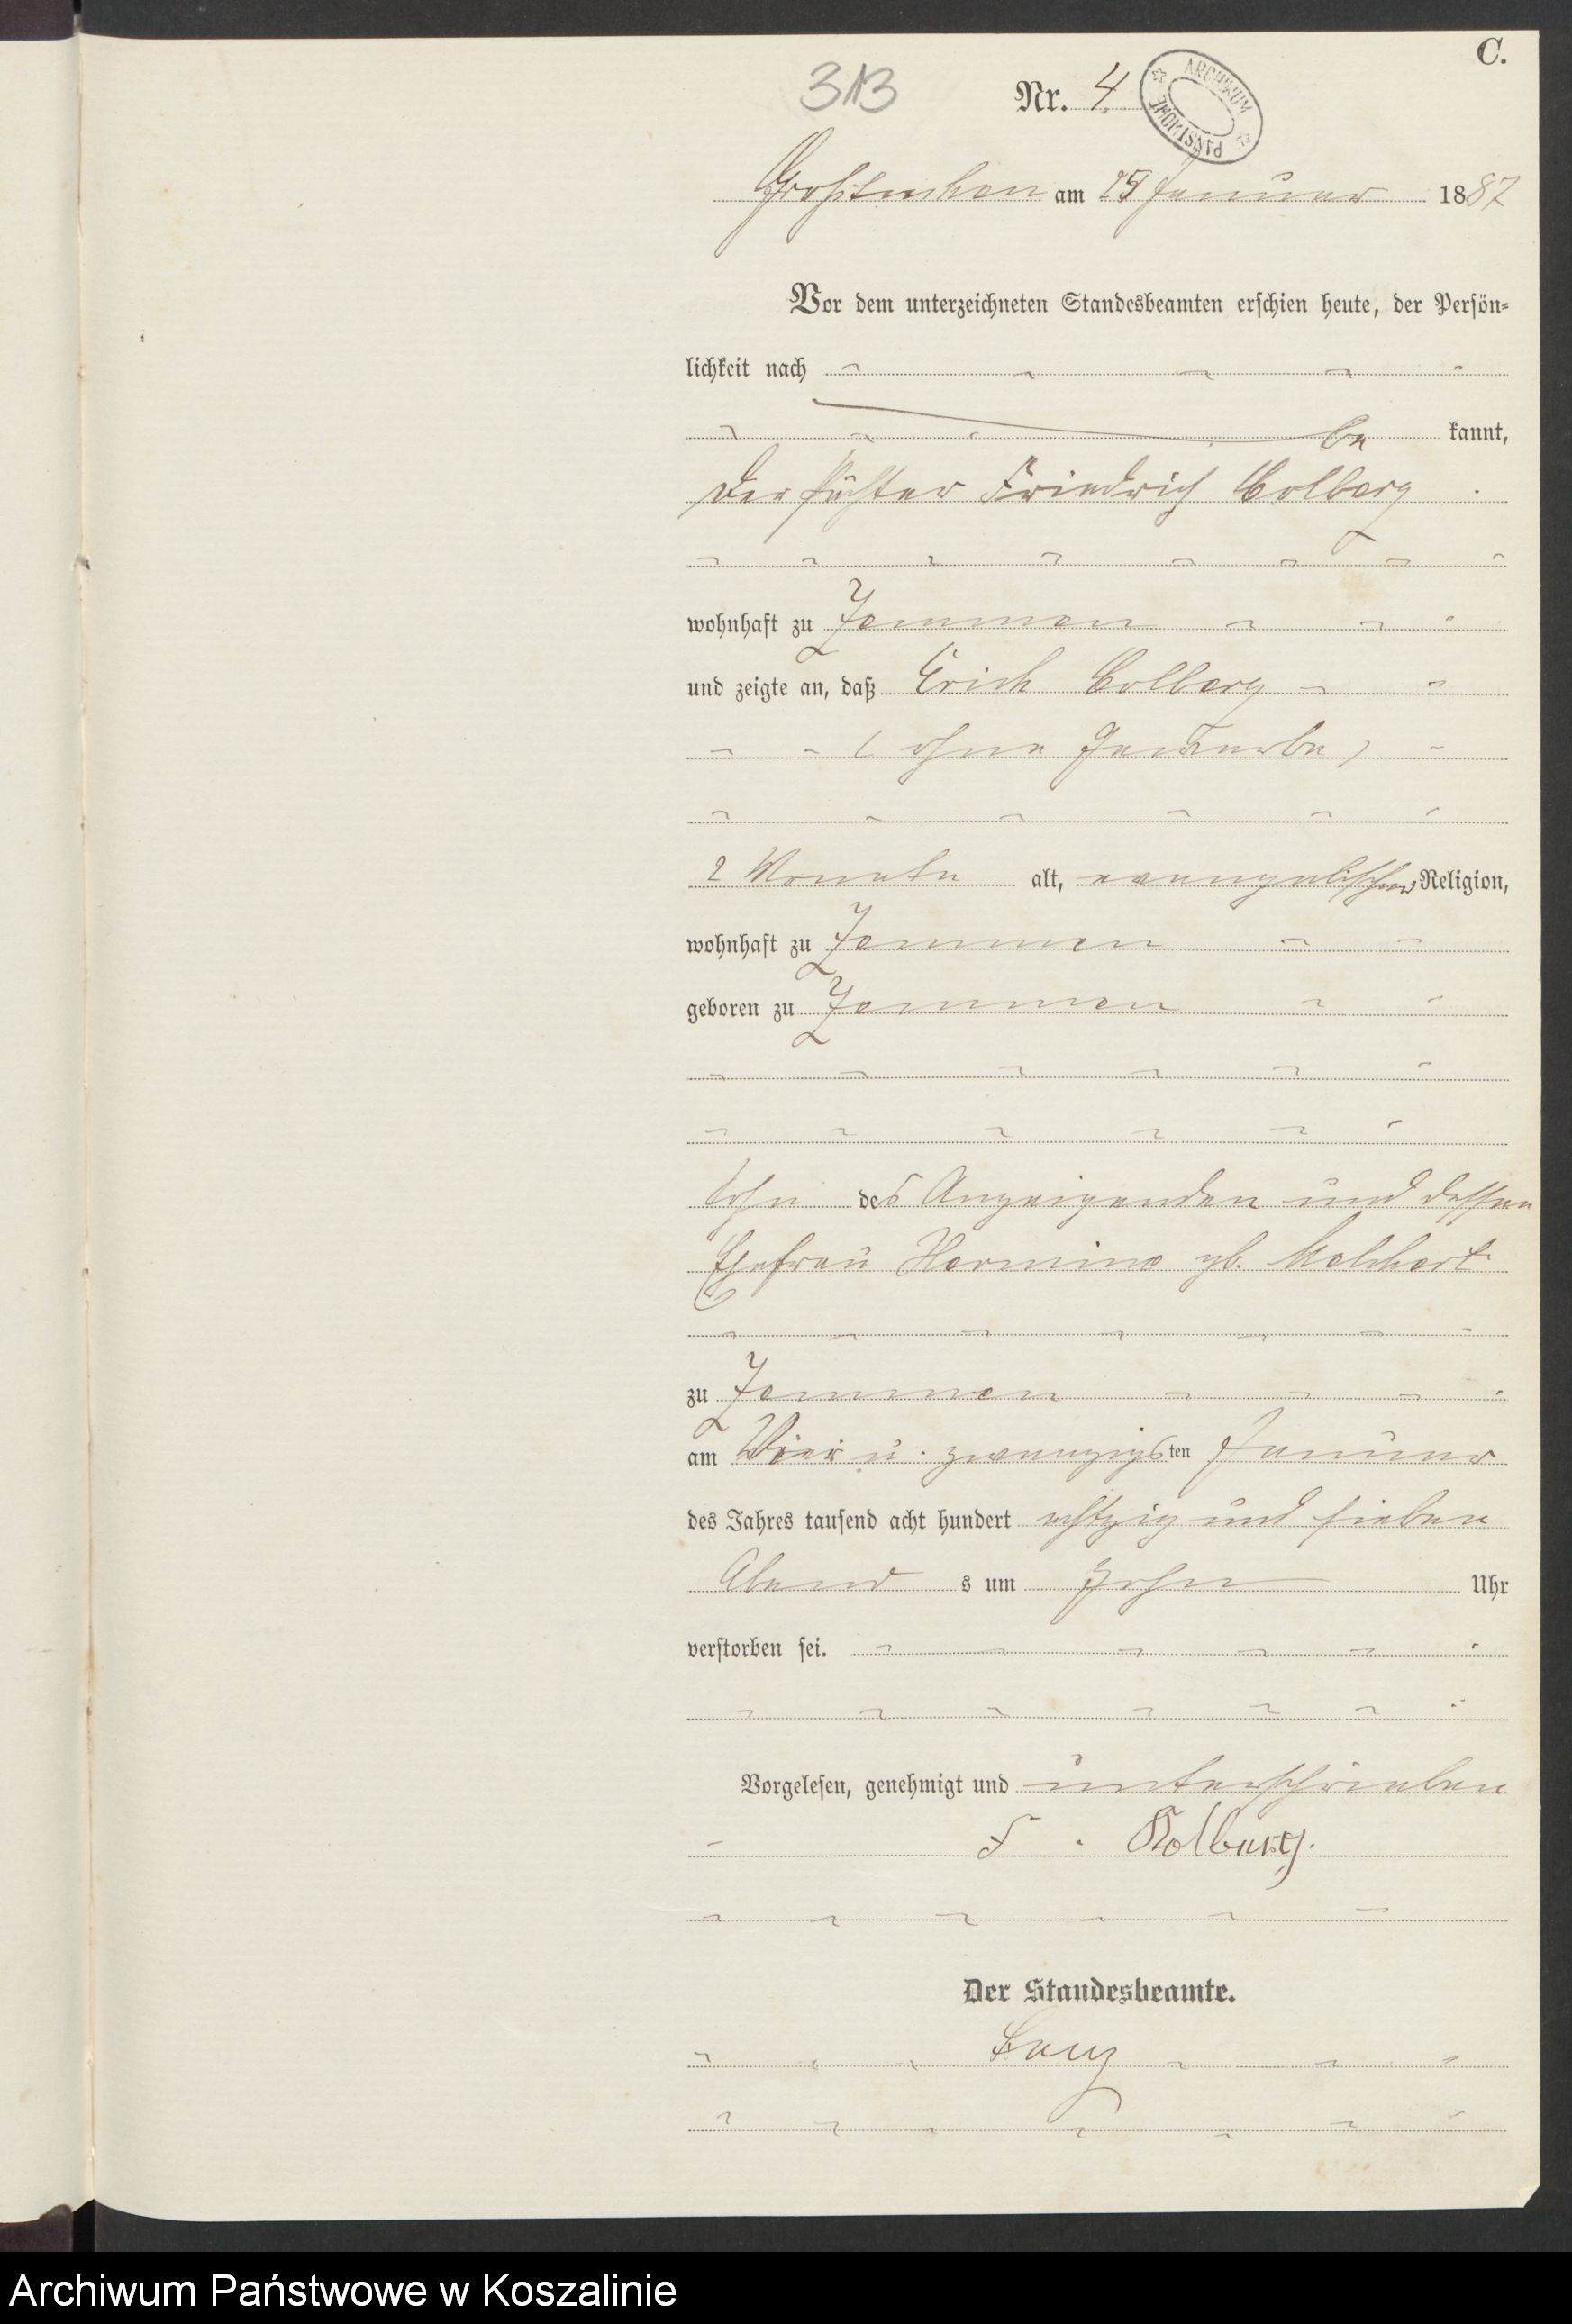 C.
313
Nr. 4
ARCHIWUM PAŃSTWOWE
Großtuchen am 25 Januar 1887
Vor dem unterzeichneten Standesbeamten erschien heute, der Persön-
lichkeit nach
be kannt,
der Pächter Friedrich Colberg
wohnhaft zu Zemmen
und zeigte an, daß Erich Colberg
(ohne Gewerbe)
2 Monate alt, evangelischer Religion,
wohnhaft zu Zemmen
geboren zu Zemmen
Sohn des Anzeigenden und dessen
Ehefrau Hermine gb. Melchert
zu Zemmen
am Vier u. zwanzigsten Januar
des Jahres tausend acht hundert achtzig und sieben
Abend s um zehn Uhr
verstorben sei.
Vorgelesen, genehmigt und unterschrieben
F. Kolberg.
Der Standesbeamte.
Archiwum Państwowe w Koszalinie